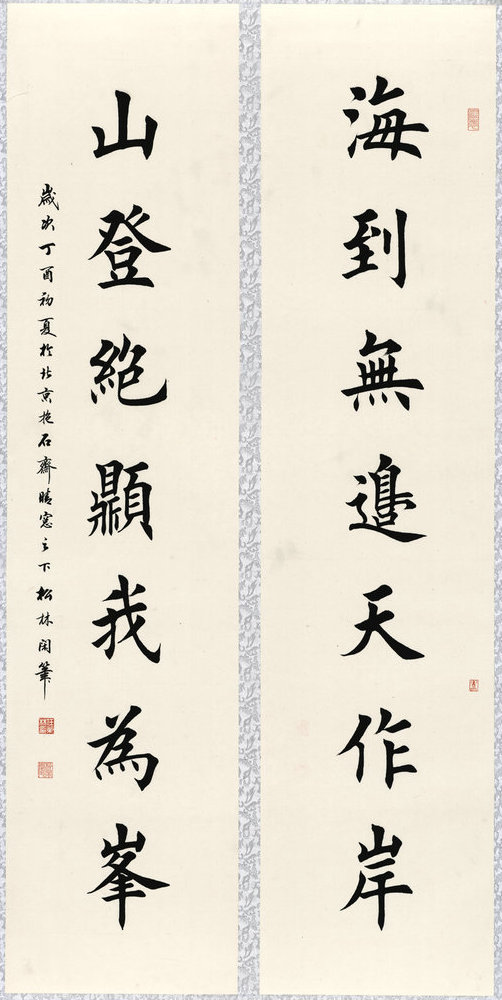 海到無邉天作岸
山登絶𩕢我為峯
歲次丁酉初夏於北京抱石齋晴窓之下松林閑筆